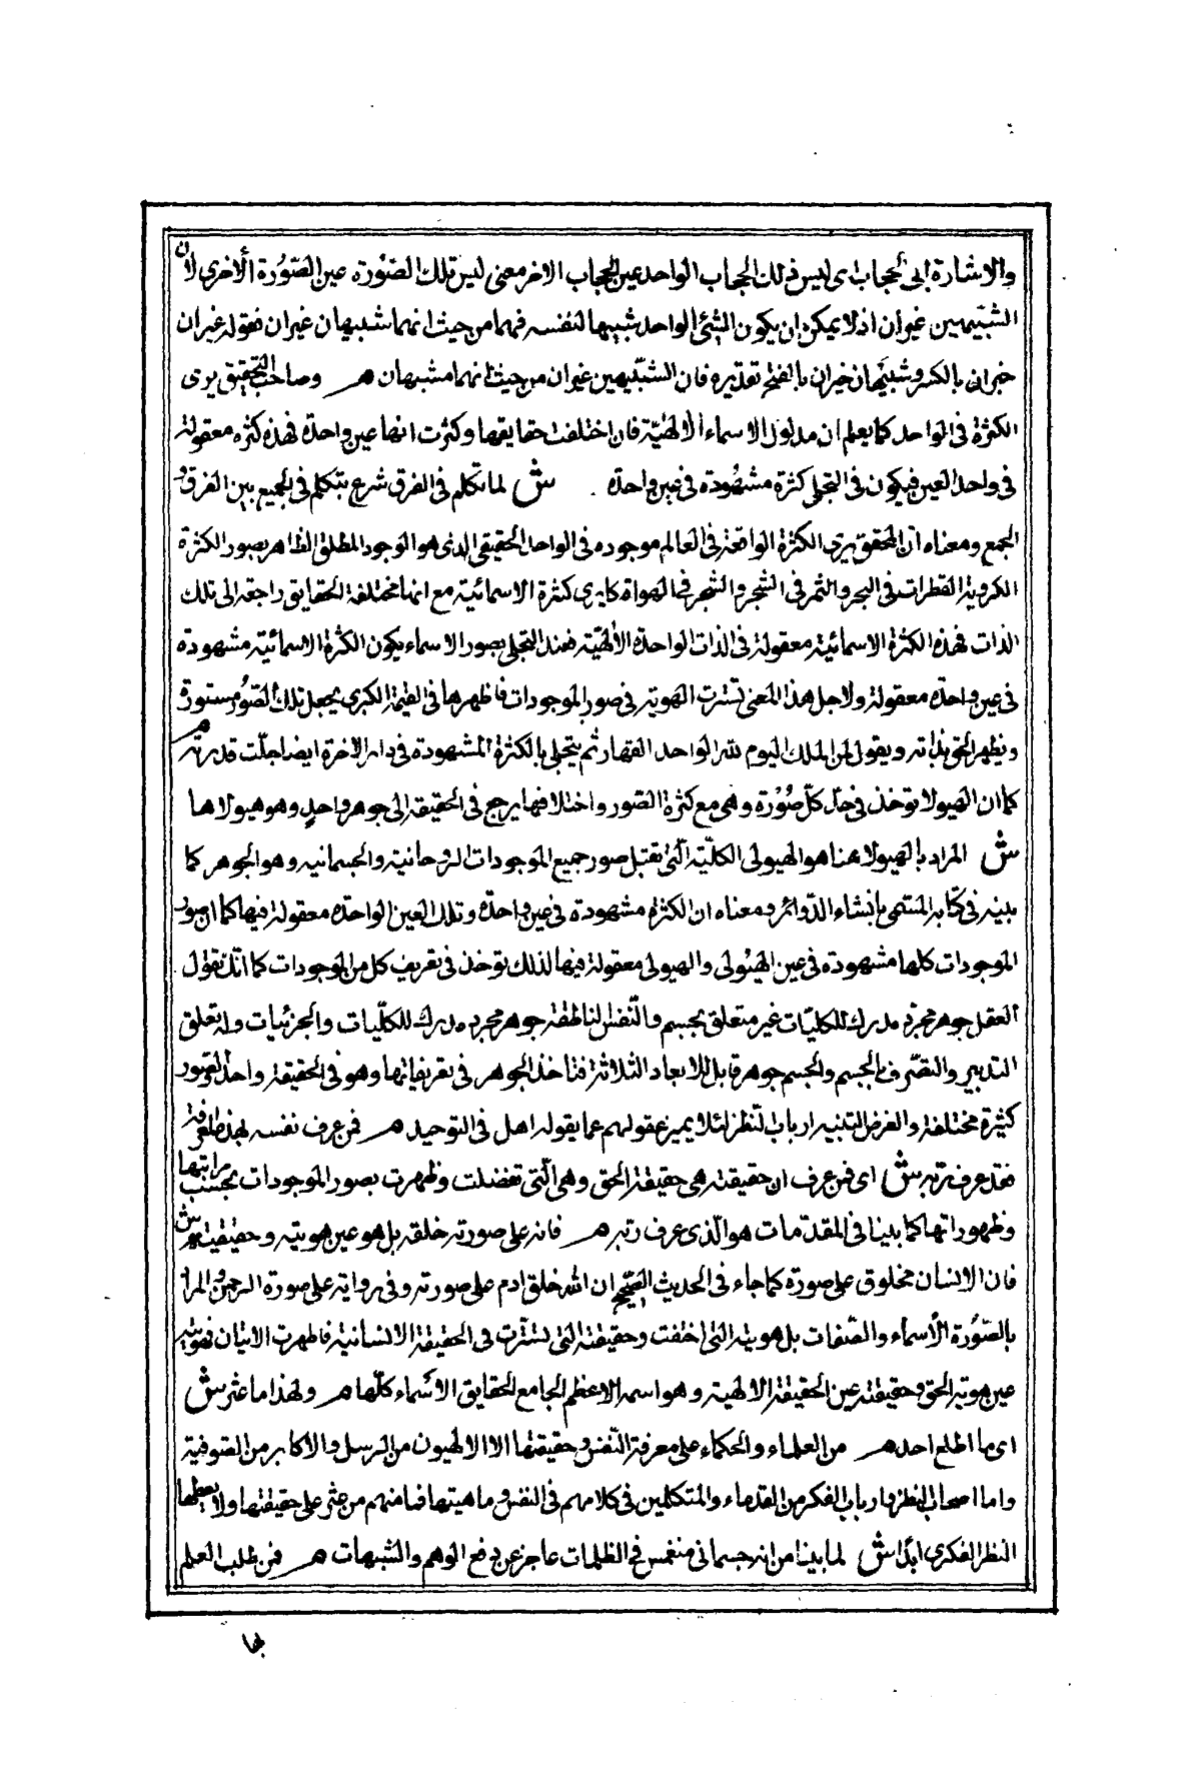 والاشارة الى الحجاب اى ليس ذلك الحجاب الواحد عين الحجاب الاخر معنى ليس تلك الصّورة عين الصّورة الأخرى لأن
الشبيهين غيران اذ لا يمكن ان يكون الشئ الواحد شبيها لنفسه فهما من حيث انهما شبيهان غيران فقوله غيران
خبر ان بالكسر وشبيهان خبر ان بالفتح تقديره فان الشبيهين غيران من حيث انهما مشبهان هر وصاحب التحقيق يرى
الكثرة فى الواحد كما يعلم ان مدلول الاسماء الالهيّة فان اختلفت حقايقها وكثرت انها عين واحدة فهذه كثره معقولة
فى واحد العين فيكون فى التجلى كثرة مشهودة فى عين واحدة . ش لما تكلم فى الفرق شرع بتكلم فى الجميع بين الفرق و
الجمع ومعناه ان المحقق يرى الكثرة الواقعة فى العالم موجوده فى الواحد الحقيقى الذى هو الوجود المطلق الظاهر بصور الكثرة
الكروية القطرات فى البحر والثمر فى الشجر والشجر فى النواة كما يرى كثرة الاسمائية مع انها مختلفة الحقايق راجعه الى تلك
الذات فهذه الكثرة الاسمائية معقولة فى الذات الواحدة الالهيّة فعند التجلى بصور الاسماء يكون الكثرة الاسمائية مشهودة
فى عين واحدة معقولة ولاجل هذا المعنى تسترت الهوية فى صور الموجودات فاظهرها فى القيمة الكبرى يجعل تلك الصّور مستورة
ويظهر الحق بذاته ويقول لمن الملك اليوم لله الواحد القهار ثم يتجلى بالكثرة المشهودة فى دار الاخرة ايضا جلّت قدرته هر
كما ان الهيولا توخذ فى حدّ كلّ صُوُرة وهى مع كثرة الصّور واختلافها يرجع فى الحقيقة الى جوهر واحدٍ وهو هيولاها
ش المراد بالهيولا هنا هو الهيولى الكليّة الّتى تقبل صور جميع الموجودات الروحانية والجسمانيه وهو الجوهر كما
بينه فى كتابه المسمى بانشاء الدّوائر ومعناه ان الكثرة مشهودة فى عين واحدة وتلك العين الواحدة معقولة فيها كما ان صور
الموجودات كلها مشهودة فى عين الهيُولى والهيولى معقولة فيها لذلك توخذ فى تعريف كل من الموجودات كما انك تقول
العقل جوهر مجرّد مدرك للكليّات غير متعلق بجسم والنّفس الناطقة جوهر مجرد مدرك للكلّيات والجزئيات وله تعلق
التدبير والتصّرف بالجسم والجسم جوهر قابل للابعاد الثلاثة فتاخذ الجوهر فى تعريفاتها وهو فى الحقيقة واحد والصور
كثيرة مختلفة والغرض التنبيه ارباب النظر لئلا يميز عقولهم عما يقوله اهل فى التوحيد هر فمن عرف نفسه بهذه المعرفة
فقد عرف ربه ش اى فمن عرف ان حقيقته هى حقيقة الحق وهى الّتى تفضلت وظهرت بصور الموجودات بحسب مراتبها
وظهوراتها كما بينا فى المقدّمات هو الّذى عرف ربه هر فانه على صورته خلقه بل هو عين هويته وحقيقته ش
فان الانسان مخلوق على صورة كما جاء فى الحديث الصّحيح ان الله خلق ادم على صورته وفى رواية على صورة الرحمن والمراد
بالصّوُرة الأسماء والصّفات بل هويته التى اختفت وحقيقته التى تسترت فى الحقيقة الانسانية فاظهرت الانيان فهويته
عين هوية الحق وحقيقته عين الحقيقة الالهية وهو اسمه الاعظم الجامع لحقايق الأسماء كلّها هر ولهذا ما عثر ش
اى ما اطلع احد هر من العلماء والحكماء على معرفة النّفس وحقيقتها الا الالهيون من الرسل والاكابر من الصّوفية
واما اصحاب النظر وارباب الفكر من القدماء والمتكلمين فى كلامهم فى النفس وماهيتها فما منهم من عثر على حقيقتها ولا يعطيها
النظر الفكرى ابدًا ش لما بينا من انه جسمانى منغمس فى الظلمات عاجز عن دفع الوهم والشبهات هر فمن طلب العلم
بها